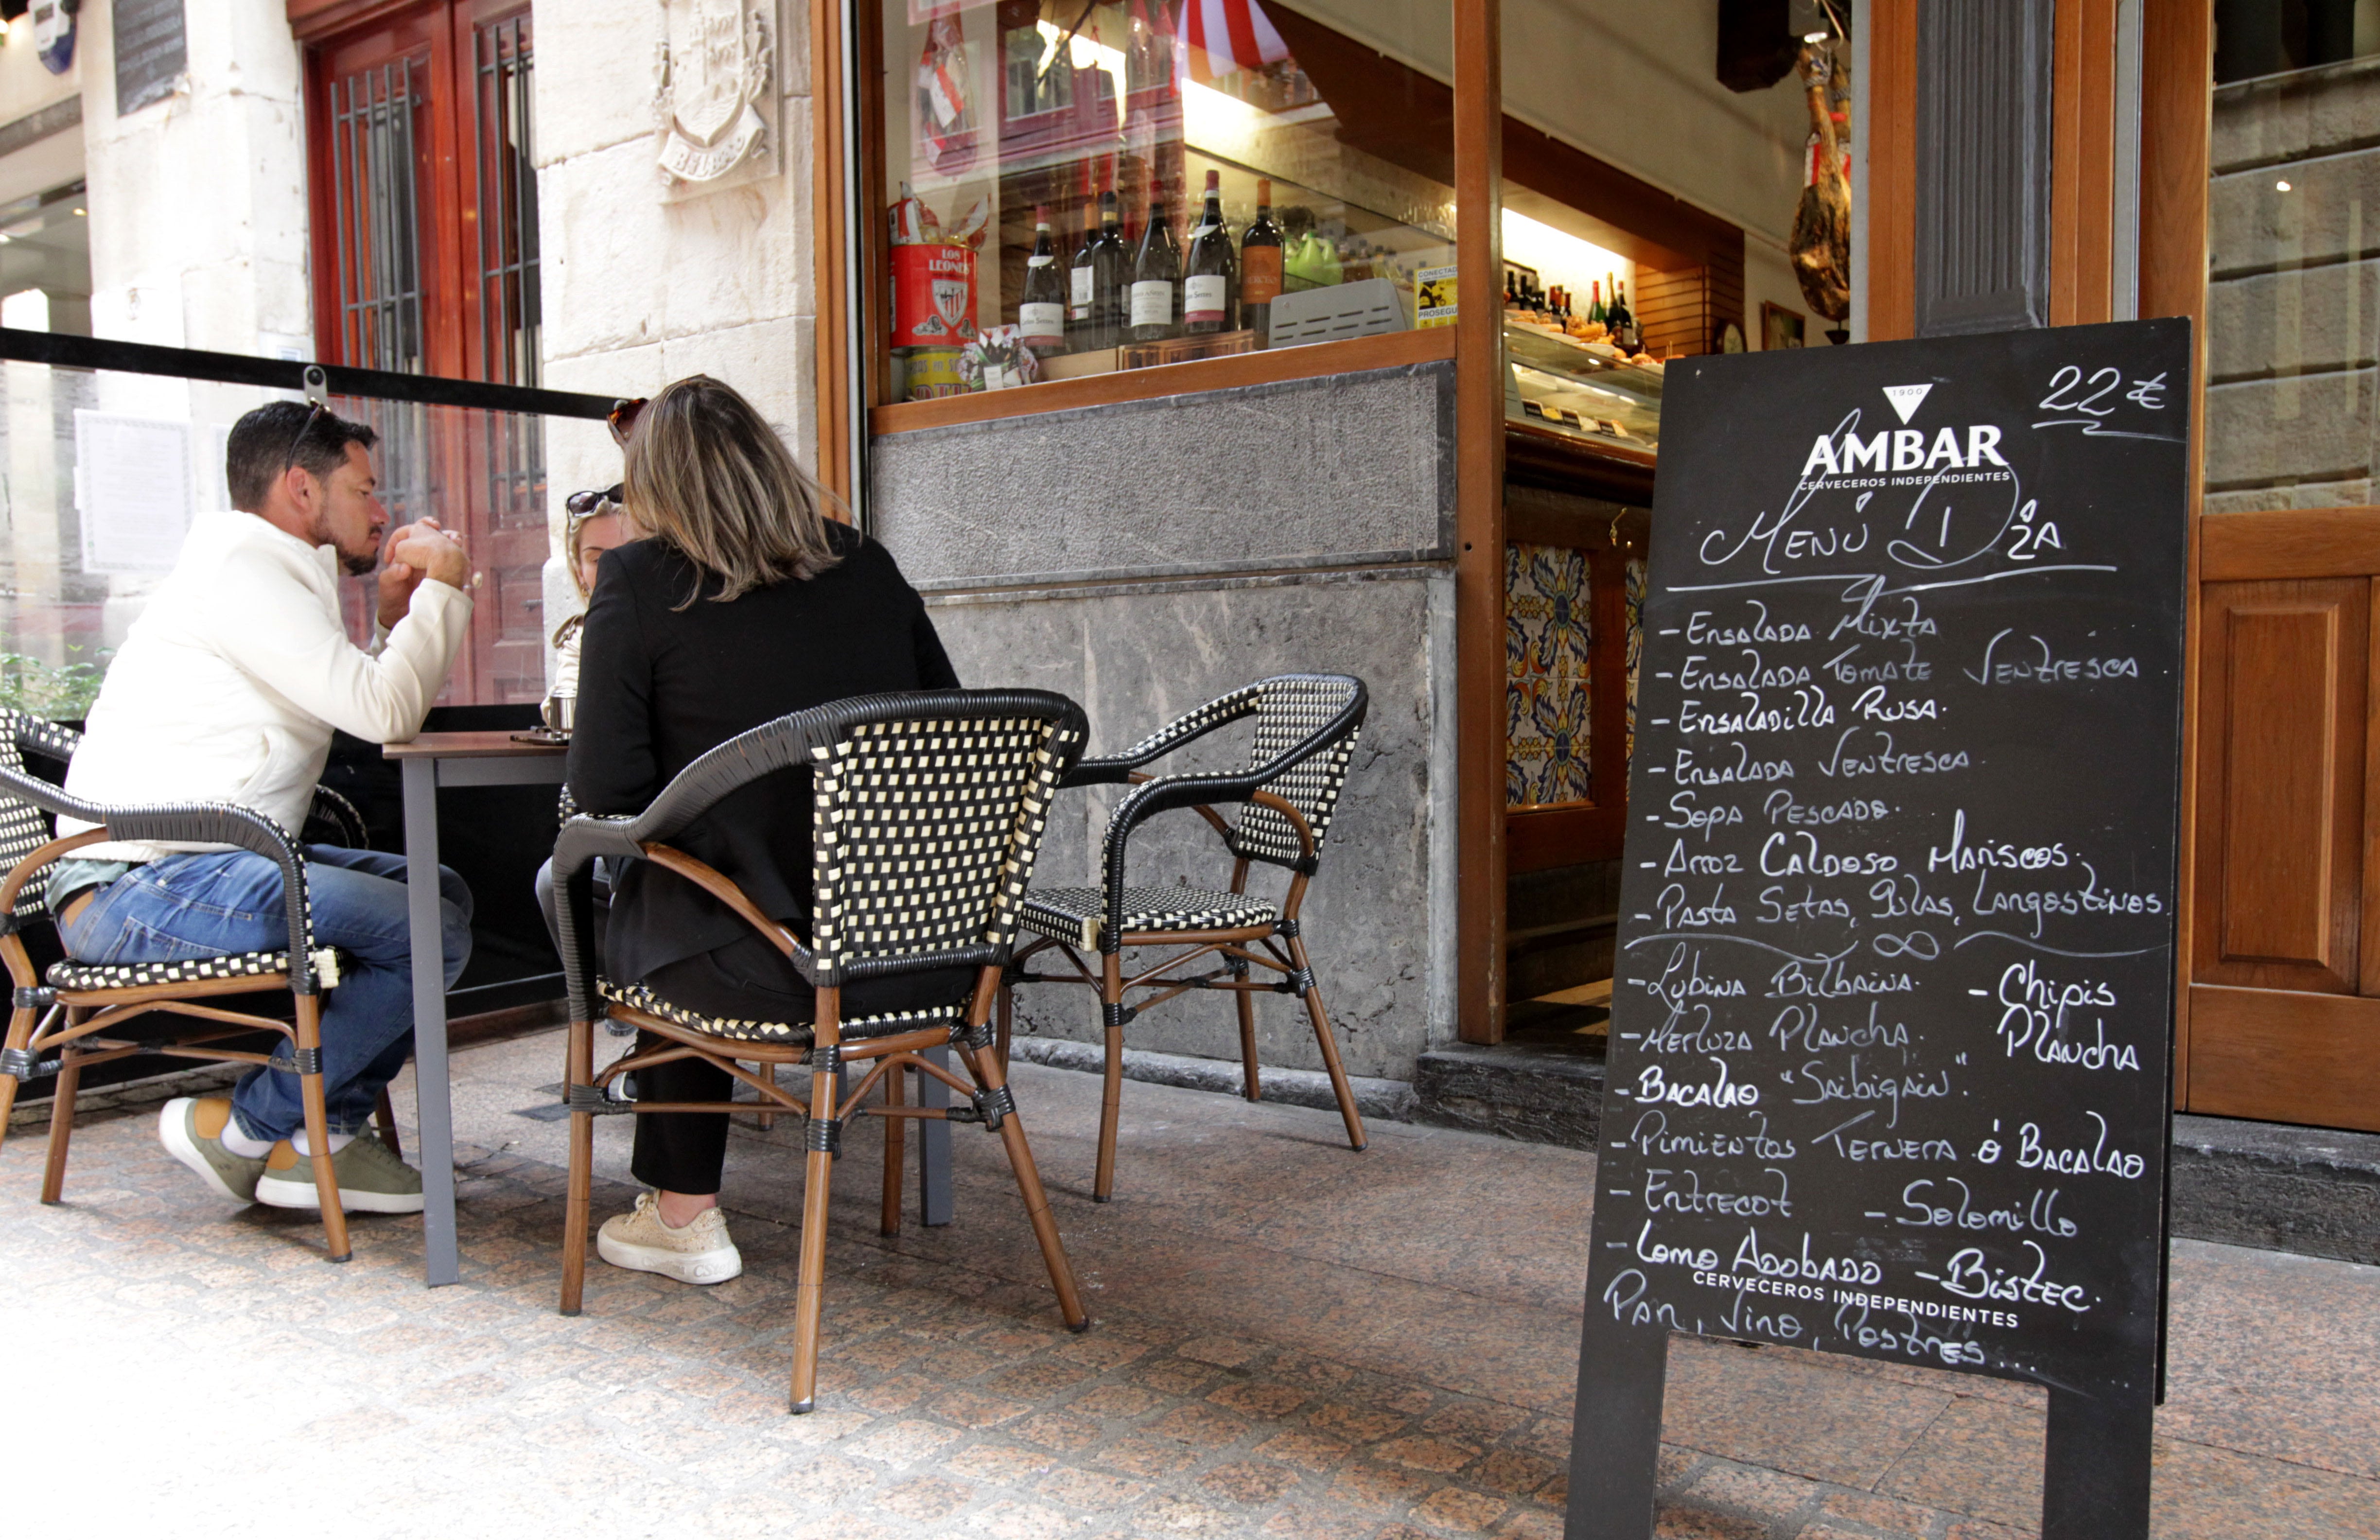 BILBAO
LOS
LEONES
CONECTADO
PROSEGUR
22 €
1900
AMBAR
CERVECEROS INDEPENDIENTES
MENÚ DíA
- ENSALADA MiXTA
- ENSALADA TOMATE VENTRESCA
- ENSALADillA RUSA.
- ENSALADA VENTRESCA.
- SOPA PESCADO.
- Arroz CALDOSO MARiSCOS.
- PASTA SETAS, GULAS, LANGOSTiNOS
- LUBiNA BiLBAiNA.
- MERLUZA PLANCHA.
- Chipis
PLANCHA
- BACALAO "SAibigAiN".
- PiMiENTOS TERNERA ó BACALAO
- ENTRECOT - Solomillo
- LOMO ADOBADO - BiSTEC.
CERVECEROS INDEPENDIENTES
PAN, ViNO, POSTRES...